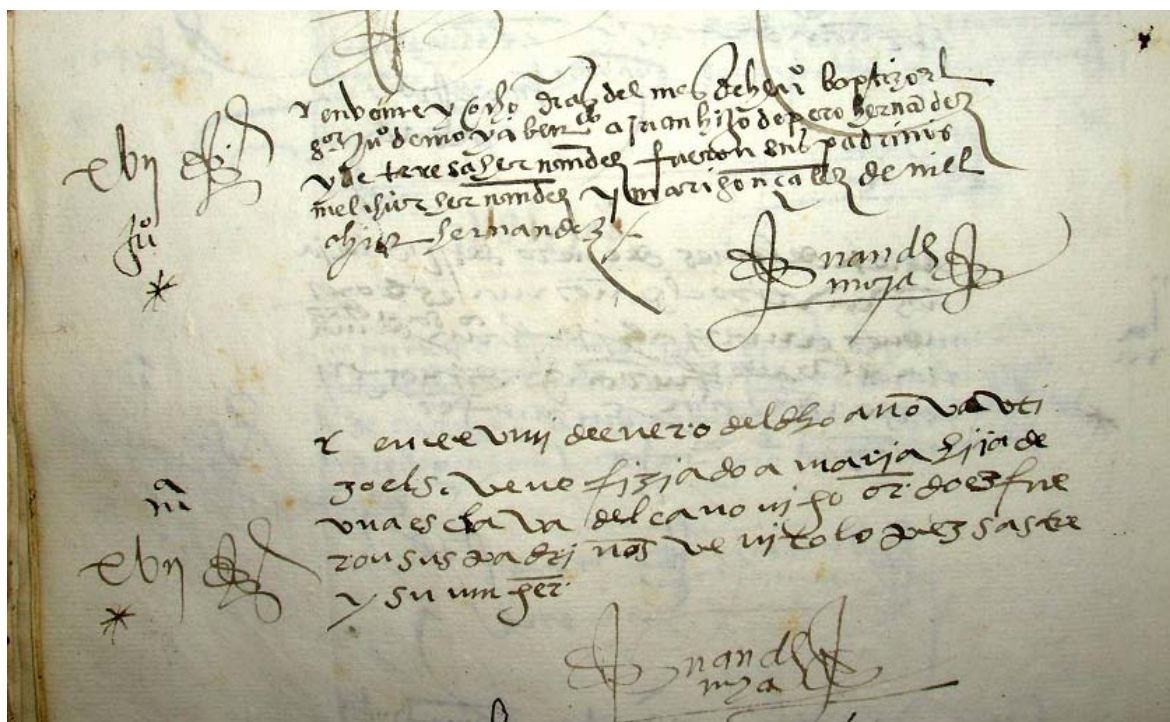 en veynte y ocho dias del mes de hen^o baptizo el
s^or Ju^o de moya ben^do a juan hijo de pero hernandez
y de teresa hernandez fueron sus padrinos
melchior hernandez y mari gonçalez de mel
chior hernandez
xbij
Ju^o
hernand
moya
en de enero del dho año vavti
zo el s. venefiziado a maria hija de
vna esclava del canonigo ordoñez fue
ron sus padrinos venito lopez sastre
y su muger
m^a
xbij
hernand
moya